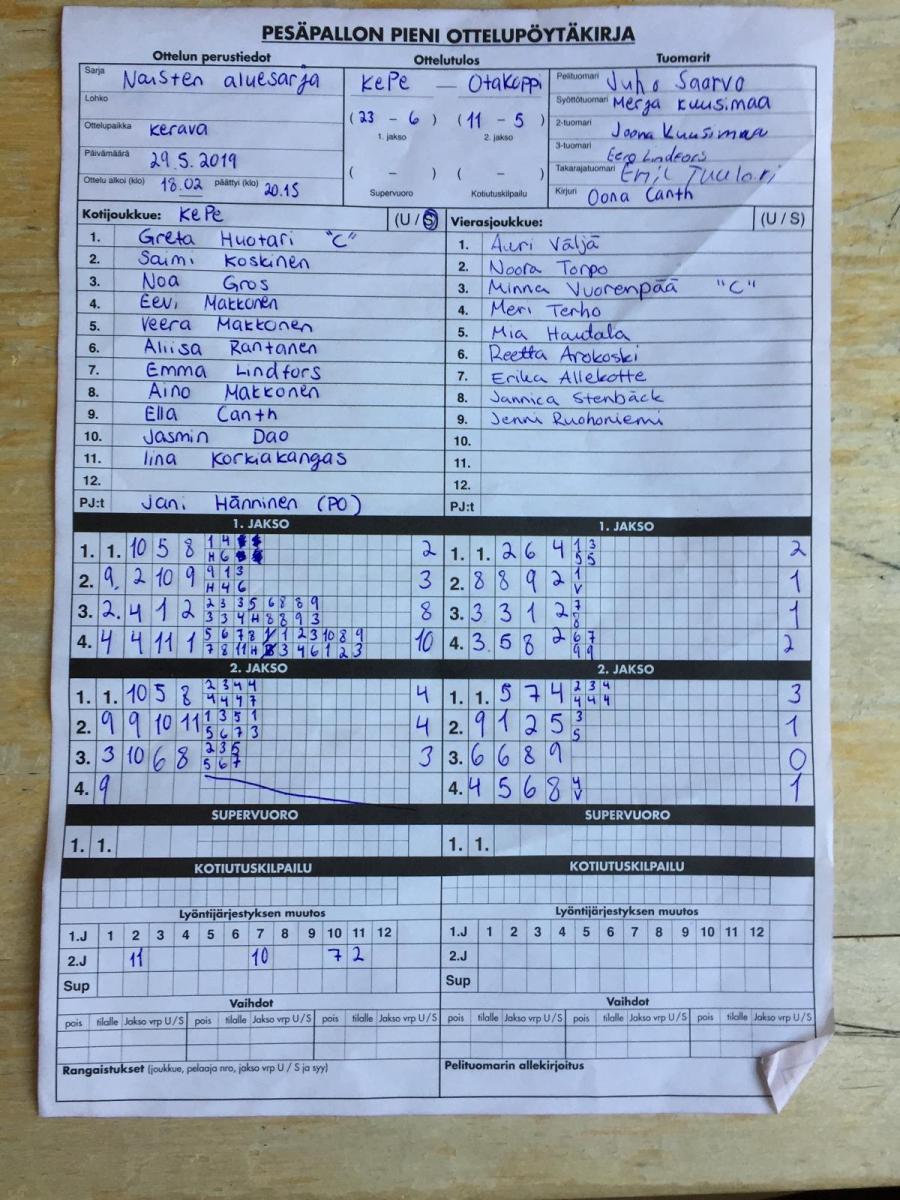 PESÄPALLON PIENI OTTELUPÖYTÄKIRJA
Ottelun perustiedot
Sarja Naisten aluesarja
Lohko
Ottelupaikka Kerava
Päivämäärä 29.5.2019
Ottelu alkoi (klo) 18.02 päättyi (klo) 20.15
Ottelutulos
KePe — Otakoppi
(23 - 6) (11 - 5)
1. jakso 2. jakso
( - ) ( - )
Supervuoro Kotiutuskilpailu
Tuomarit
Pelituomari Juho Saarvo
Syöttötuomari Merja Kuusimaa
2-tuomari Joona Kuusimaa
3-tuomari Eero Lindfors
Takarajatuomari Emil Tuulari
Kirjuri Oona Canth
Kotijoukkue: KePe (U / S)
1. Greta Huotari "C"
2. Saimi Koskinen
3. Noa Gros
4. Eevi Makkonen
5. Veera Makkonen
6. Aliisa Rantanen
7. Emma Lindfors
8. Aino Makkonen
9. Ella Canth
10. Jasmin Dao
11. Iina Korkiakangas
12.
PJ:t Jani Hänninen (PO)
Vierasjoukkue: (U / S)
1. Auri Väljä
2. Noora Torpo
3. Minna Vuorenpää "C"
4. Meri Terho
5. Mia Hautala
6. Reetta Arokoski
7. Erika Allekotte
8. Jannica Stenbäck
9. Jenni Ruohoniemi
10.
11.
12.
PJ:t
1. JAKSO
1. 1. 10 5 8 1 4 2
H 6
2. 9. 2 10 9 9 1 3 3
H 4 6
3. 2. 4 1 2 2 3 3 5 6 8 8 9 8
3 3 4 H 8 8 9 3
4. 4 4 11 1 5 6 7 8 1 2 3 10 8 9 10
7 8 11 H 3 4 6 1 2 3
1. JAKSO
1. 1. 2 6 4 1 3 2
5 5
2. 8 8 9 2 1 1
V
3. 3 3 1 2 7 1
8
4. 3. 5 8 2 6 7 2
9 9
2. JAKSO
1. 1. 10 5 8 2 3 4 4 4
4 4 4 7
2. 9 9 10 11 1 3 5 1 4
5 6 7 3
3. 3 10 6 8 2 3 5 3
5 6 7
4. 9
2. JAKSO
1. 1. 5 7 4 2 3 4 3
4 4 4
2. 9 1 2 5 3 1
5
3. 6 6 8 9 0
4. 4 5 6 8 4 1
V
SUPERVUORO
1. 1.
SUPERVUORO
1. 1.
KOTIUTUSKILPAILU
KOTIUTUSKILPAILU
Lyöntijärjestyksen muutos
1.J 1 2 3 4 5 6 7 8 9 10 11 12
2.J 11 10 7 2
Sup
Lyöntijärjestyksen muutos
1.J 1 2 3 4 5 6 7 8 9 10 11 12
2.J
Sup
Vaihdot
pois tilalle Jakso vrp U / S pois tilalle Jakso vrp U / S pois tilalle Jakso vrp U / S
Vaihdot
pois tilalle Jakso vrp U / S pois tilalle Jakso vrp U / S pois tilalle Jakso vrp U / S
Rangaistukset (joukkue, pelaaja nro, jakso vrp U / S ja syy)
Pelituomarin allekirjoitus